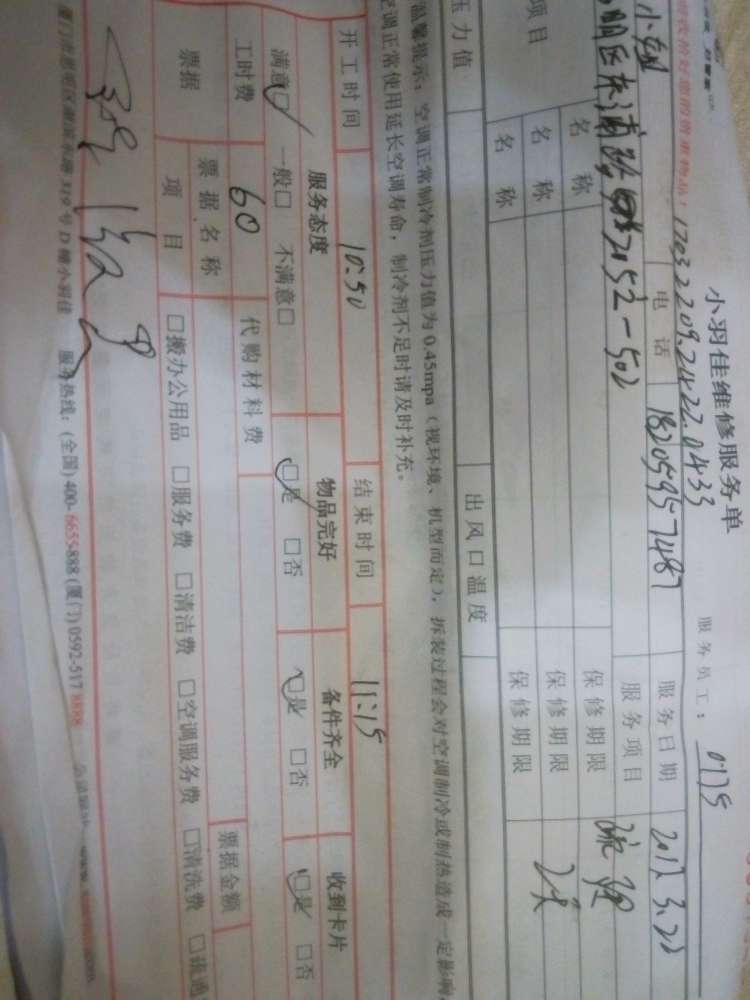 小羽佳维修服务单
1703220924220433 服务员工：0175
小组 电话 18205957487 服务日期 2017.3.22
明区东浦路 2152-502 服务项目 疏通
项目 名称 保修期限
名称 保修期限 2天
名称 保修期限
压力值 出风口温度
温馨提示：空调正常制冷剂压力值为0.45mpa（视环境、机型而定），拆装过程会对空调制冷或制热造成一定影响，
空调正常使用延长空调寿命，制冷剂不足时请及时补充。
开工时间 10:50 结束时间 11:15
服务态度 物品完好 备件齐全 收到卡片
满意□ 一般□ 不满意□ □是 □否 □是 □否 □是 □否
工时费 60 代购材料费
票据 票据名称 票据金额
项目 □搬办公用品 □服务费 □清洁费 □空调服务费 □清洗费 □疏通
D幢小羽佳 服务热线：(全国) 400-6655-888 (厦门) 0592-517 8888